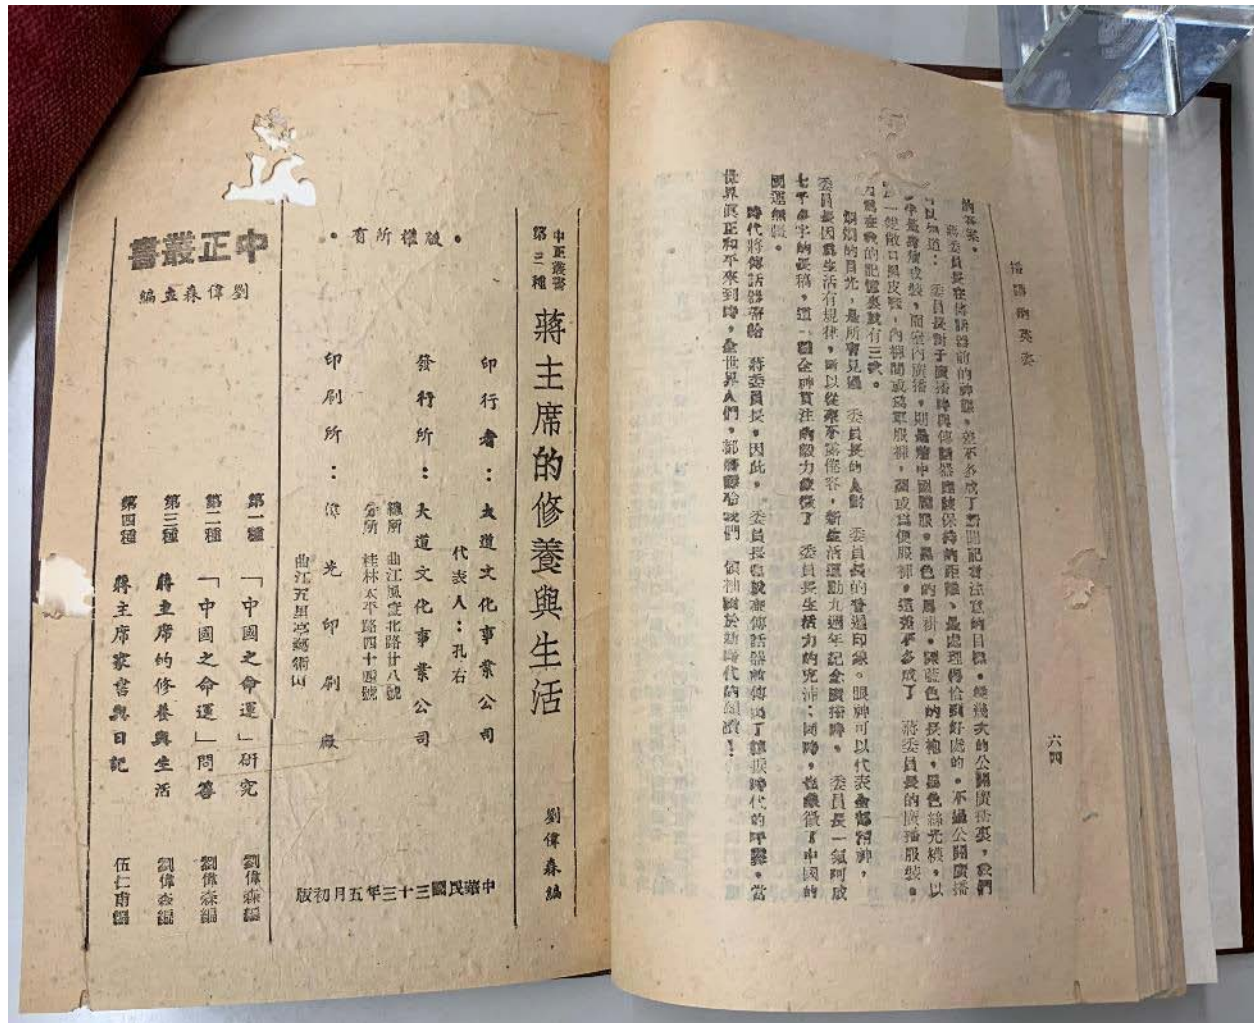 播講的英姿
六四
的答案。
蔣委員長在傳話器前的神韻,差不多成了新聞記者注意的目標。幾次的公開廣播裏,我們
可以知道: 委員長對于廣播時與傳話器應該保持的距離、是處理得恰到好處的。不過公開廣播
是身着戎裝,而室內廣播,則是着中國國服。黑色的馬褂,深藍色的長袍,黑色絲光襪,以
一雙敞口黑皮鞋,內裡間或為軍服褲,間或為便服褲,這差不多成了 蔣委員長的廣播服裝。
為在我的記憶裏就有三次。
炯炯的目光,是所有見過 委員長的人對 委員長的普遍印象。眼神可以代表全部精神,
委員長因為生活有規律,所以從來不露倦容,新生活運動九週年記念廣播時, 委員長一氣呵成
七千多字的長稿,這一種全神貫注的毅力象徵了 委員長生活力的充沛;同時,也象徵了中國的
國運無疆。
時代將傳話器寄給 蔣委員長,因此, 委員長也就在傳話器前傳出了時代的呼聲。當
世界真正和平來到時,全世界人們,都將獻給我們 領袖關於新時代的頌讚!
中正叢書
第三種
蔣主席的修養與生活
劉偉森編
•版權所有•
印行者:大道文化事業公司
代表人:孔右
發行所:大道文化事業公司
總所 曲江風度北路廿八號
分所 桂林太平路四十四號
印刷所:偉光印刷廠
曲江五里亭
中華民國三十三年五月初版
中正叢書
劉偉森主編
第一種 「中國之命運」研究 劉偉森編
第二種 「中國之命運」問答 劉偉森編
第三種 蔣主席的修養與生活 劉偉森編
第四種 蔣主席家書與日記 伍仁甫編